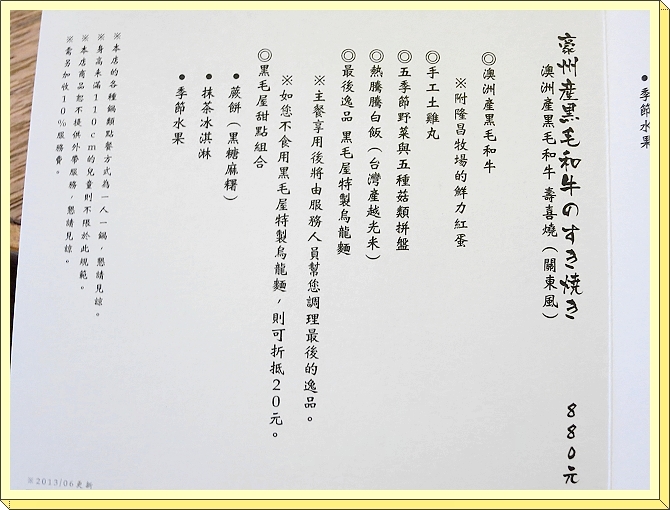 •季節水果
豪州産黒毛和牛のすき焼き 880元
澳洲產黑毛和牛 壽喜燒（關東風）
◎澳洲產黑毛和牛
※附隆昌牧場的鮮力紅蛋
◎手工土雞丸
◎五季節野菜與五種菇類拼盤
◎熱騰騰白飯（台灣產越光米）
◎最後逸品 黑毛屋特製烏龍麵
※主餐享用後將由服務人員幫您調理最後的逸品。
※如您不食用黑毛屋特製烏龍麵，則可折抵20元。
◎黑毛屋甜點組合
•蕨餅（黑糖麻糬）
•抹茶冰淇淋
•季節水果
※本店的各種鍋類點餐方式為一人一鍋，懇請見諒。
※身高未滿110cm的兒童則不限於此規範。
※本店商品恕不提供外帶服務，懇請見諒。
※需另加收10%服務費。
※2013/06更新